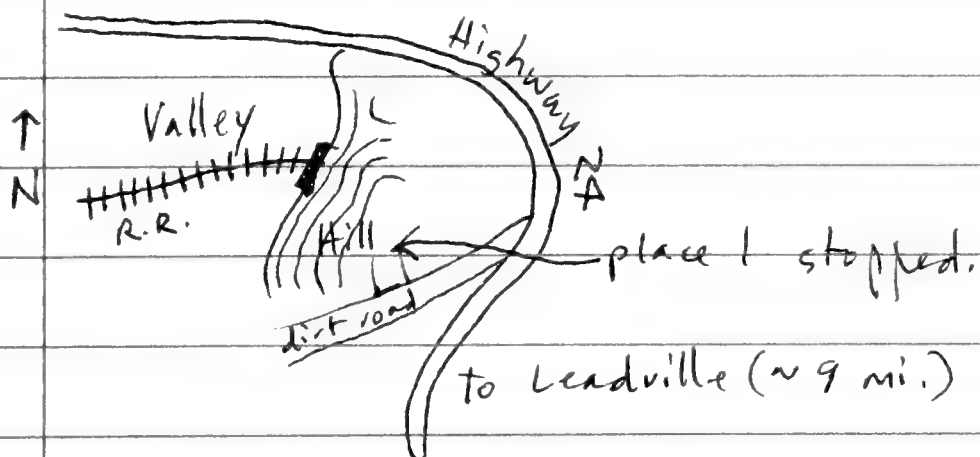 Highway
Valley
↑
N
R.R.
Hill
place I stopped.
dirt road
to Leadville (~ 9 mi.)